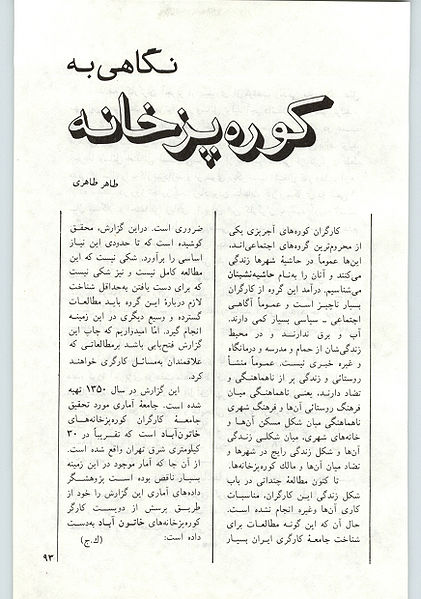 نگاهی به
کوره‌پزخانه
طاهر طاهری
کارگران کوره‌های آجرپزی یکی
از محروم‌ترین گروه‌های اجتماعی‌اند،
این‌ها عموماً در حاشیهٔ شهرها زندگی
می‌کنند و آنان را به‌نام حاشیه‌نشینان
می‌شناسیم. درآمد این گروه از کارگران
بسیار ناچیز است و عموماً آگاهی
اجتماعی ـ سیاسی بسیار کمی دارند.
آب و برق ندارند و در محیط
زندگی‌شان از حمام و مدرسه و درمانگاه
و غیره خبری نیست. عموماً منشأ
روستائی و زندگی پر از ناهماهنگی و
تضاد دارند، یعنی ناهماهنگی میان
فرهنگ روستائی آن‌ها و فرهنگ شهری
ناهماهنگی میان شکل مسکن آن‌ها و
خانه‌های شهری، میان شکلی زندگی
آن‌ها و شکل زندگی رایج در شهرها و
تضاد میان آن‌ها و مالك کوره‌پزخانه‌ها.
تا کنون مطالعهٔ چندانی در باب
شکل زندگی ایـن کارگران، مناسبات
کاری آن‌ها وغیره انجام نشده است.
حال آن که این گونه مطالعات برای
شناخت جامعهٔ کارگری ایران بسیار
ضروری است. دراین گزارش، محقق
کوشیده است که تا حدودی این نیاز
اساسی را برآورد. شکی نیست که این
مطالعه کامل نیست و نیز شکی نیست
که برای دست یافتن به‌حداقل شناخت
لازم دربارهٔ این گروه باید مطالعات
گسترده و وسیع دیگری در این زمینه
انجام گیرد. امّا امیدواریم که چاپ این
گزارش فتح‌بابی باشد برمطالعاتی که
علاقمندان به‌مسائل کارگری خواهند
کرد.
این گزارش در سال ۱۳۵۰ تهیه
شده است. جامعهٔ آماری مورد تحقیق
جامعهٔ کارگران کوره‌پزخانه‌های
خاتون‌آباد است که تقریباً در ۳۰
کیلومتری شرق تهران واقع شده است.
از آن جا که آمار موجود در این زمینه
بسیار ناقص بوده است پژوهشگر
داده‌های آماری این گزارش را خود از
طریق پرسش از دویست کارگر
کوره‌پزخانه‌های خاتون آباد به‌دست
داده است: (ك.ج)
۹۳